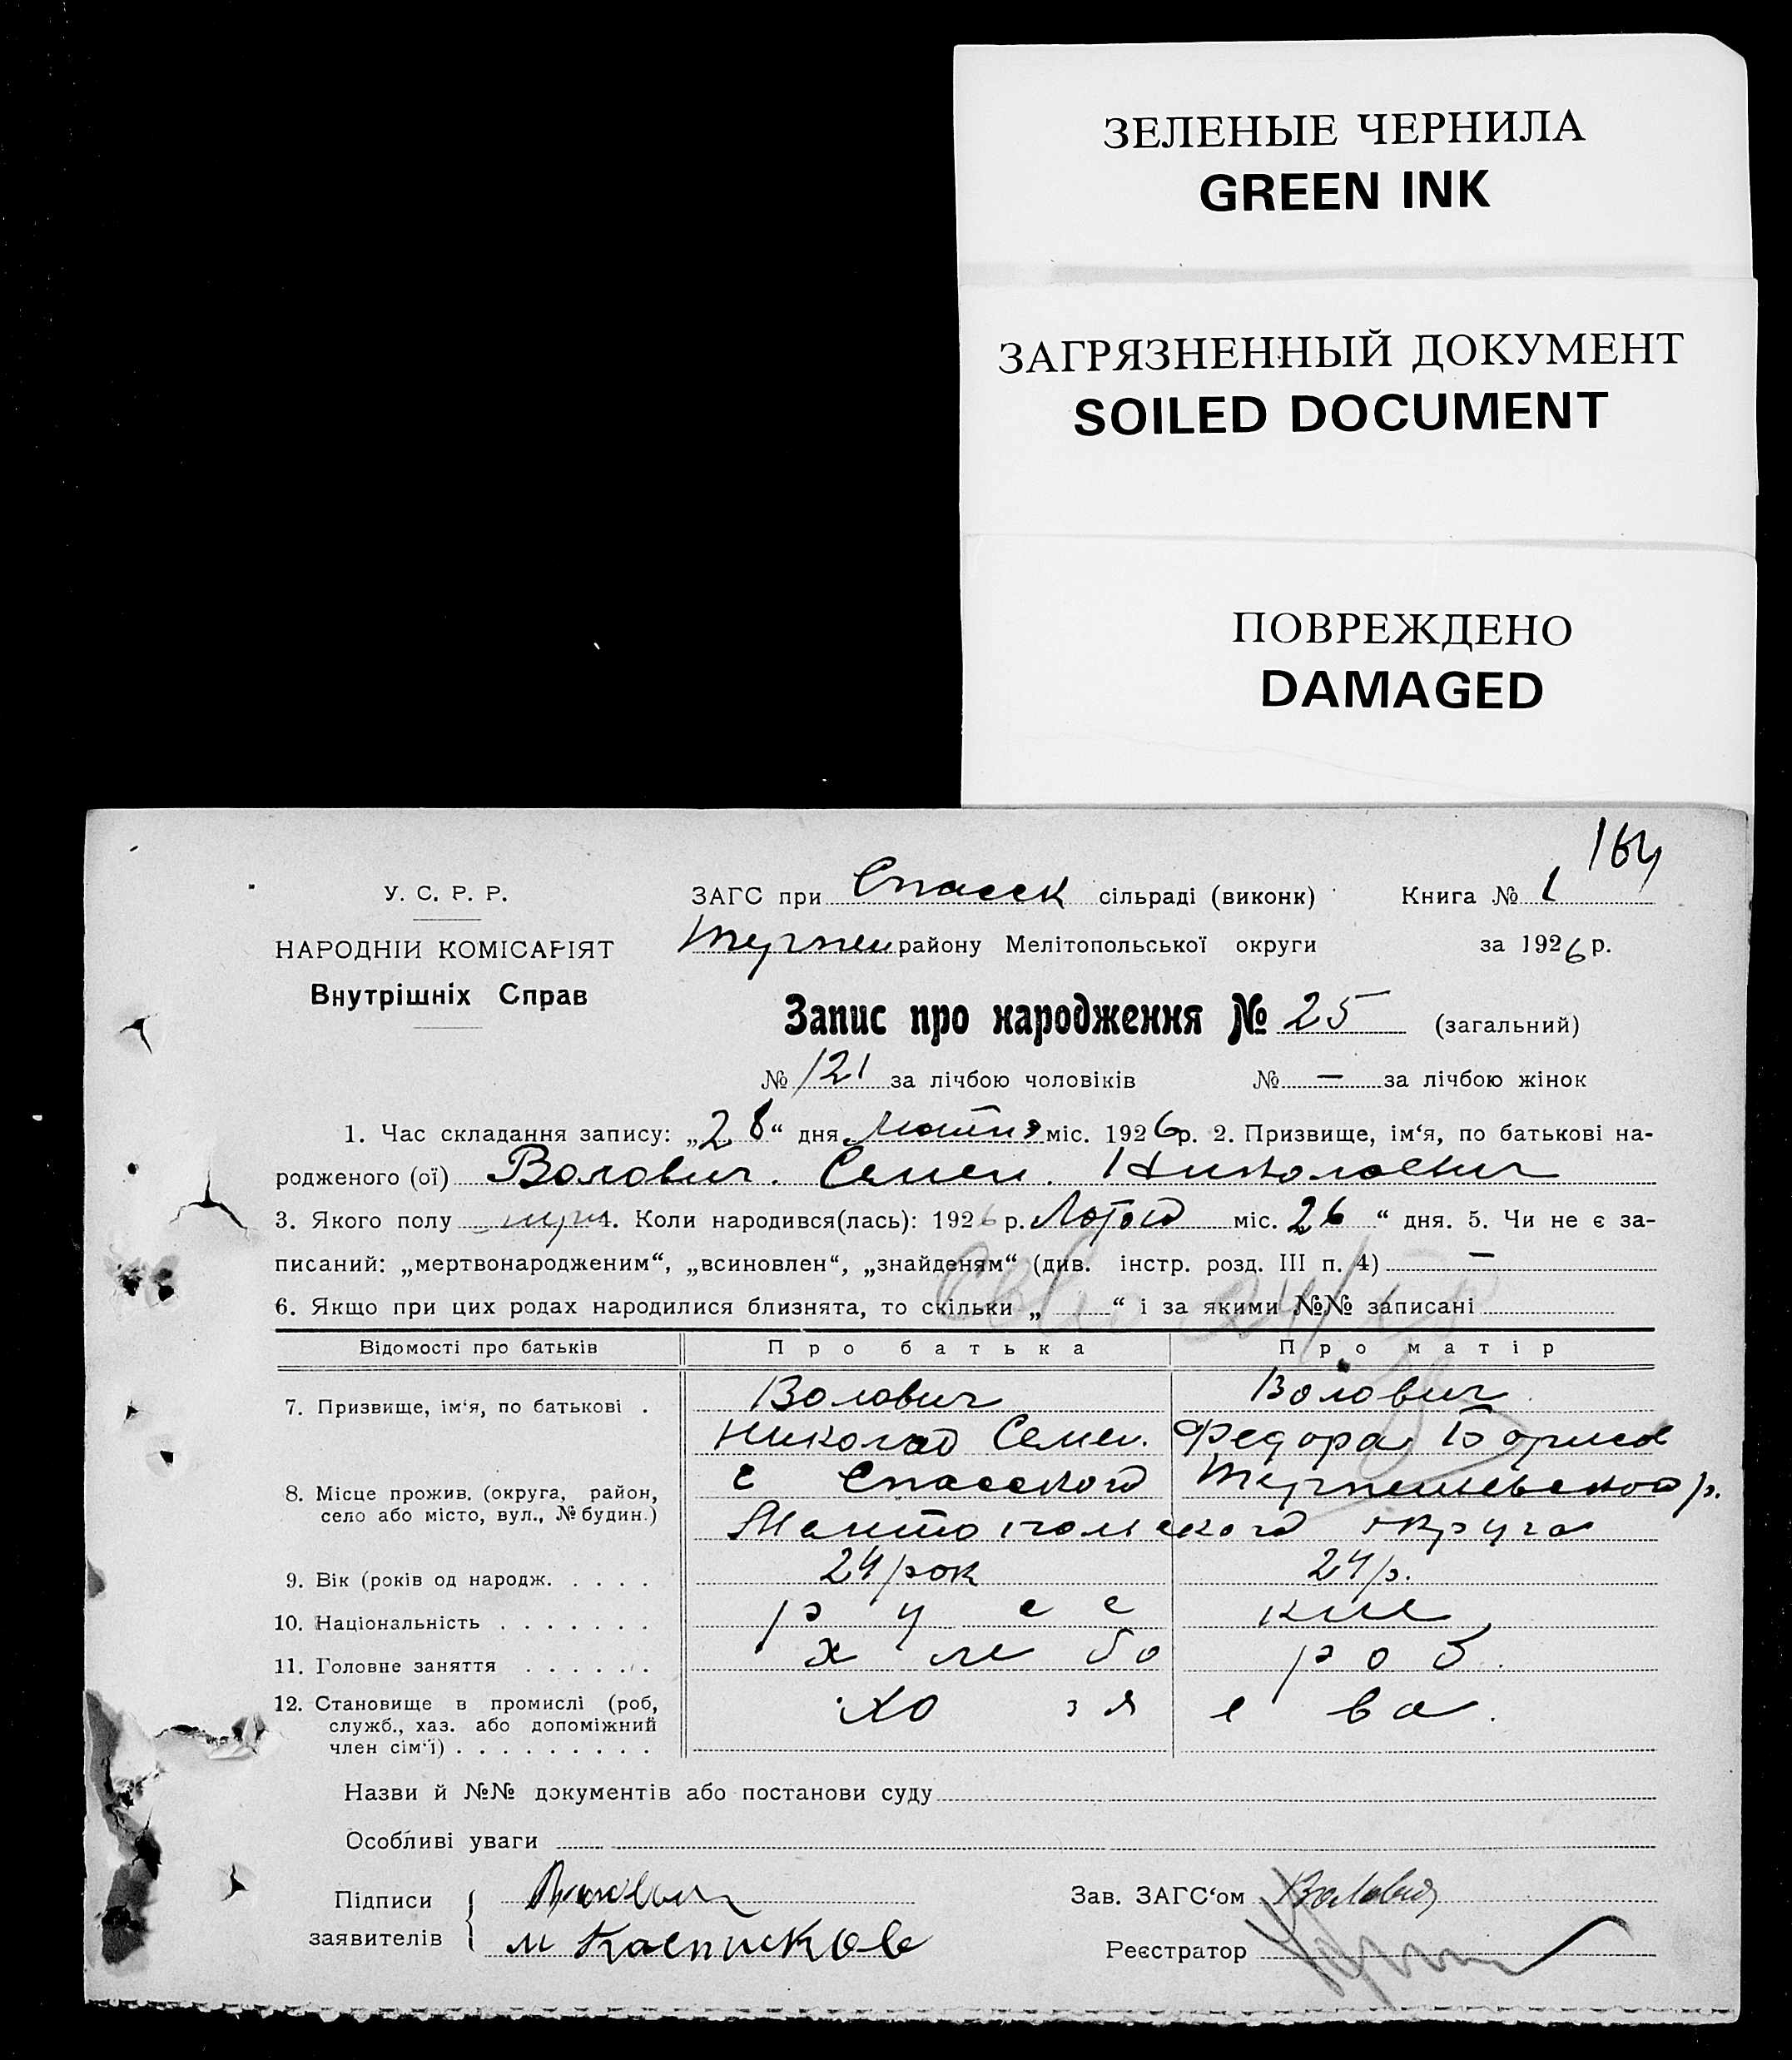 ЗЕЛЕНЫЕ ЧЕРНИЛА
GREEN INK
ЗАГРЯЗНЕННЫЙ ДОКУМЕНТ
SOILED DOCUMENT
ПОВРЕЖДЕНО
DAMAGED
164
У. С. Р. Р.
ЗАГС при Спасск сільраді (виконк) Книга № 1
НАРОДНІЙ КОМІСАРІЯТ
Внутрішніх Справ
Терпен району Мелітопольської округи за 1926 р.
Запис про народження № 25 (загальний)
№ 121 за лічбою чоловіків № — за лічбою жінок
1. Час складання запису: „28“ дня Лютня міс. 1926 р. 2. Призвище, ім‘я, по батькові на-
родженого (ої) Волович. Семен. Николаевич
3. Якого полу муж 4. Коли народився(лась): 1926 р. Лютого міс. 26 “ дня. 5. Чи не є за-
писаний: „мертвонародженим“, „всиновлен“, „знайденям“ (див. інстр. розд. III п. 4) —
6. Якщо при цих родах народилися близнята, то скільки „ “ і за якими №№ записані
Відомості про батьків Про батька Про матір
7. Призвище, ім‘я, по батькові . Волович Волович
Николай Семен. Федора Борисов
8. Місце прожив. (округа, район, село або місто, вул., № будин.) с Спасского Терпеньевского р.
Мелитопольского округа
9. Вік (років од народж. . . . . 24 рок 24 р.
10. Національність . . . . . . . русс кие
11. Головне заняття . . . . . . хлебо роб.
12. Становище в промислі (роб, служб., хаз. або допоміжний член сім‘ї) . . . . . . . . . хозя ева.
Назви й №№ документів або постанови суду
Особливі уваги
Підписи заявителів
Зав. ЗАГС‘ом Волович
Реєстратор